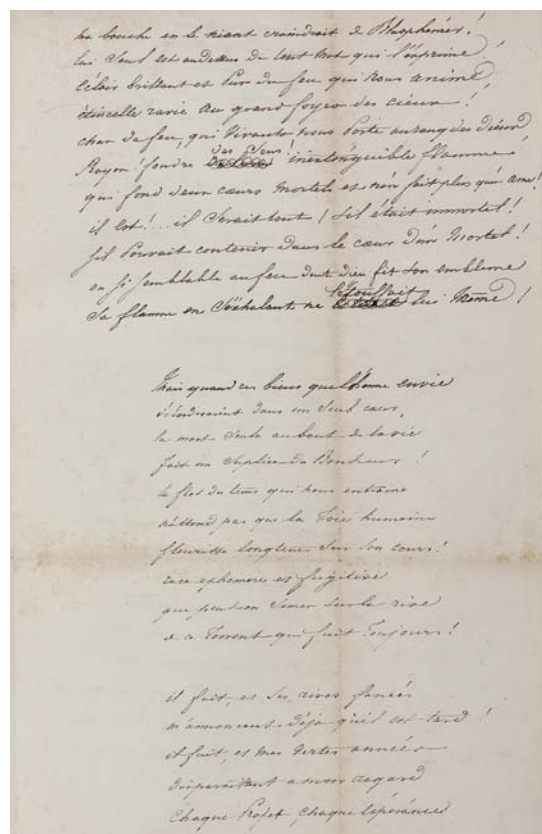 ta bouche en le niant craindrait de Blasphémer!
lui Seul est audessus du tout mot qui l'exprime
éclair brillant et Pur du feu qui nous anime
étincelle ravie au grand foyer des cieux!
char de feu, qui vivants nous Porte au rang des dieux
Rayon! foudre des Sens! inextinguible flamme
qui fond deux cœurs mortels et n'en fait plus qu'une ame!
il est!.. il Serait tout! s'il était immortel!
s'il Pouvait contenir dans le cœur d'un Mortel!
ou si semblable au feu dont dieu fit son embleme
Sa flamme en s'exhalant ne l'étouffait lui même!
Mais quand ces biens que l'homme envie
déborderaient dans un Seul cœur,
la mort Seule au bout de la vie
fait un Suplice du Bonheur!
le flot du tems qui nous entraine
n'attend pas que la Joie humaine
fleurisse longtems Sur Son cours!
race ephemere et fugitive
que peut on Semer Sur la rive
de ce Torrent qui fuit Toujours!
il fuit, et Ses rives fanées
m'annoncent déjà qu'il est tard!
il fuit, et mes vertes années
disparaissent a mon regard
Chaque Projet, Chaque Espérance